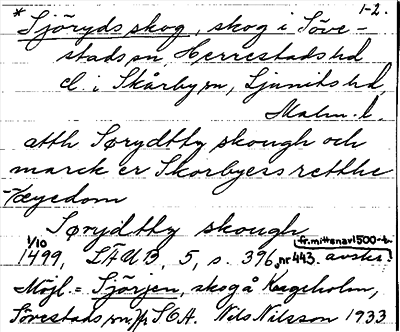 1-2.
* Sjöryds skog, skog i Söve-
stads sn, Herrestads hd
el. i Skårby sn, Ljunits hd,
Malm. l.
atth Sørydtby skough och
marck er Skorbyess retthe
æyedom
Sørydtby skough
1/10 fr. mitten av 1500-t.
1499, LÄUB, 5, s. 396, nr 443. avskr.
Möjl. = Sjörjen, skog å Krageholm,
Sövestads sn, jfr SCA. Nils Nilsson 1933